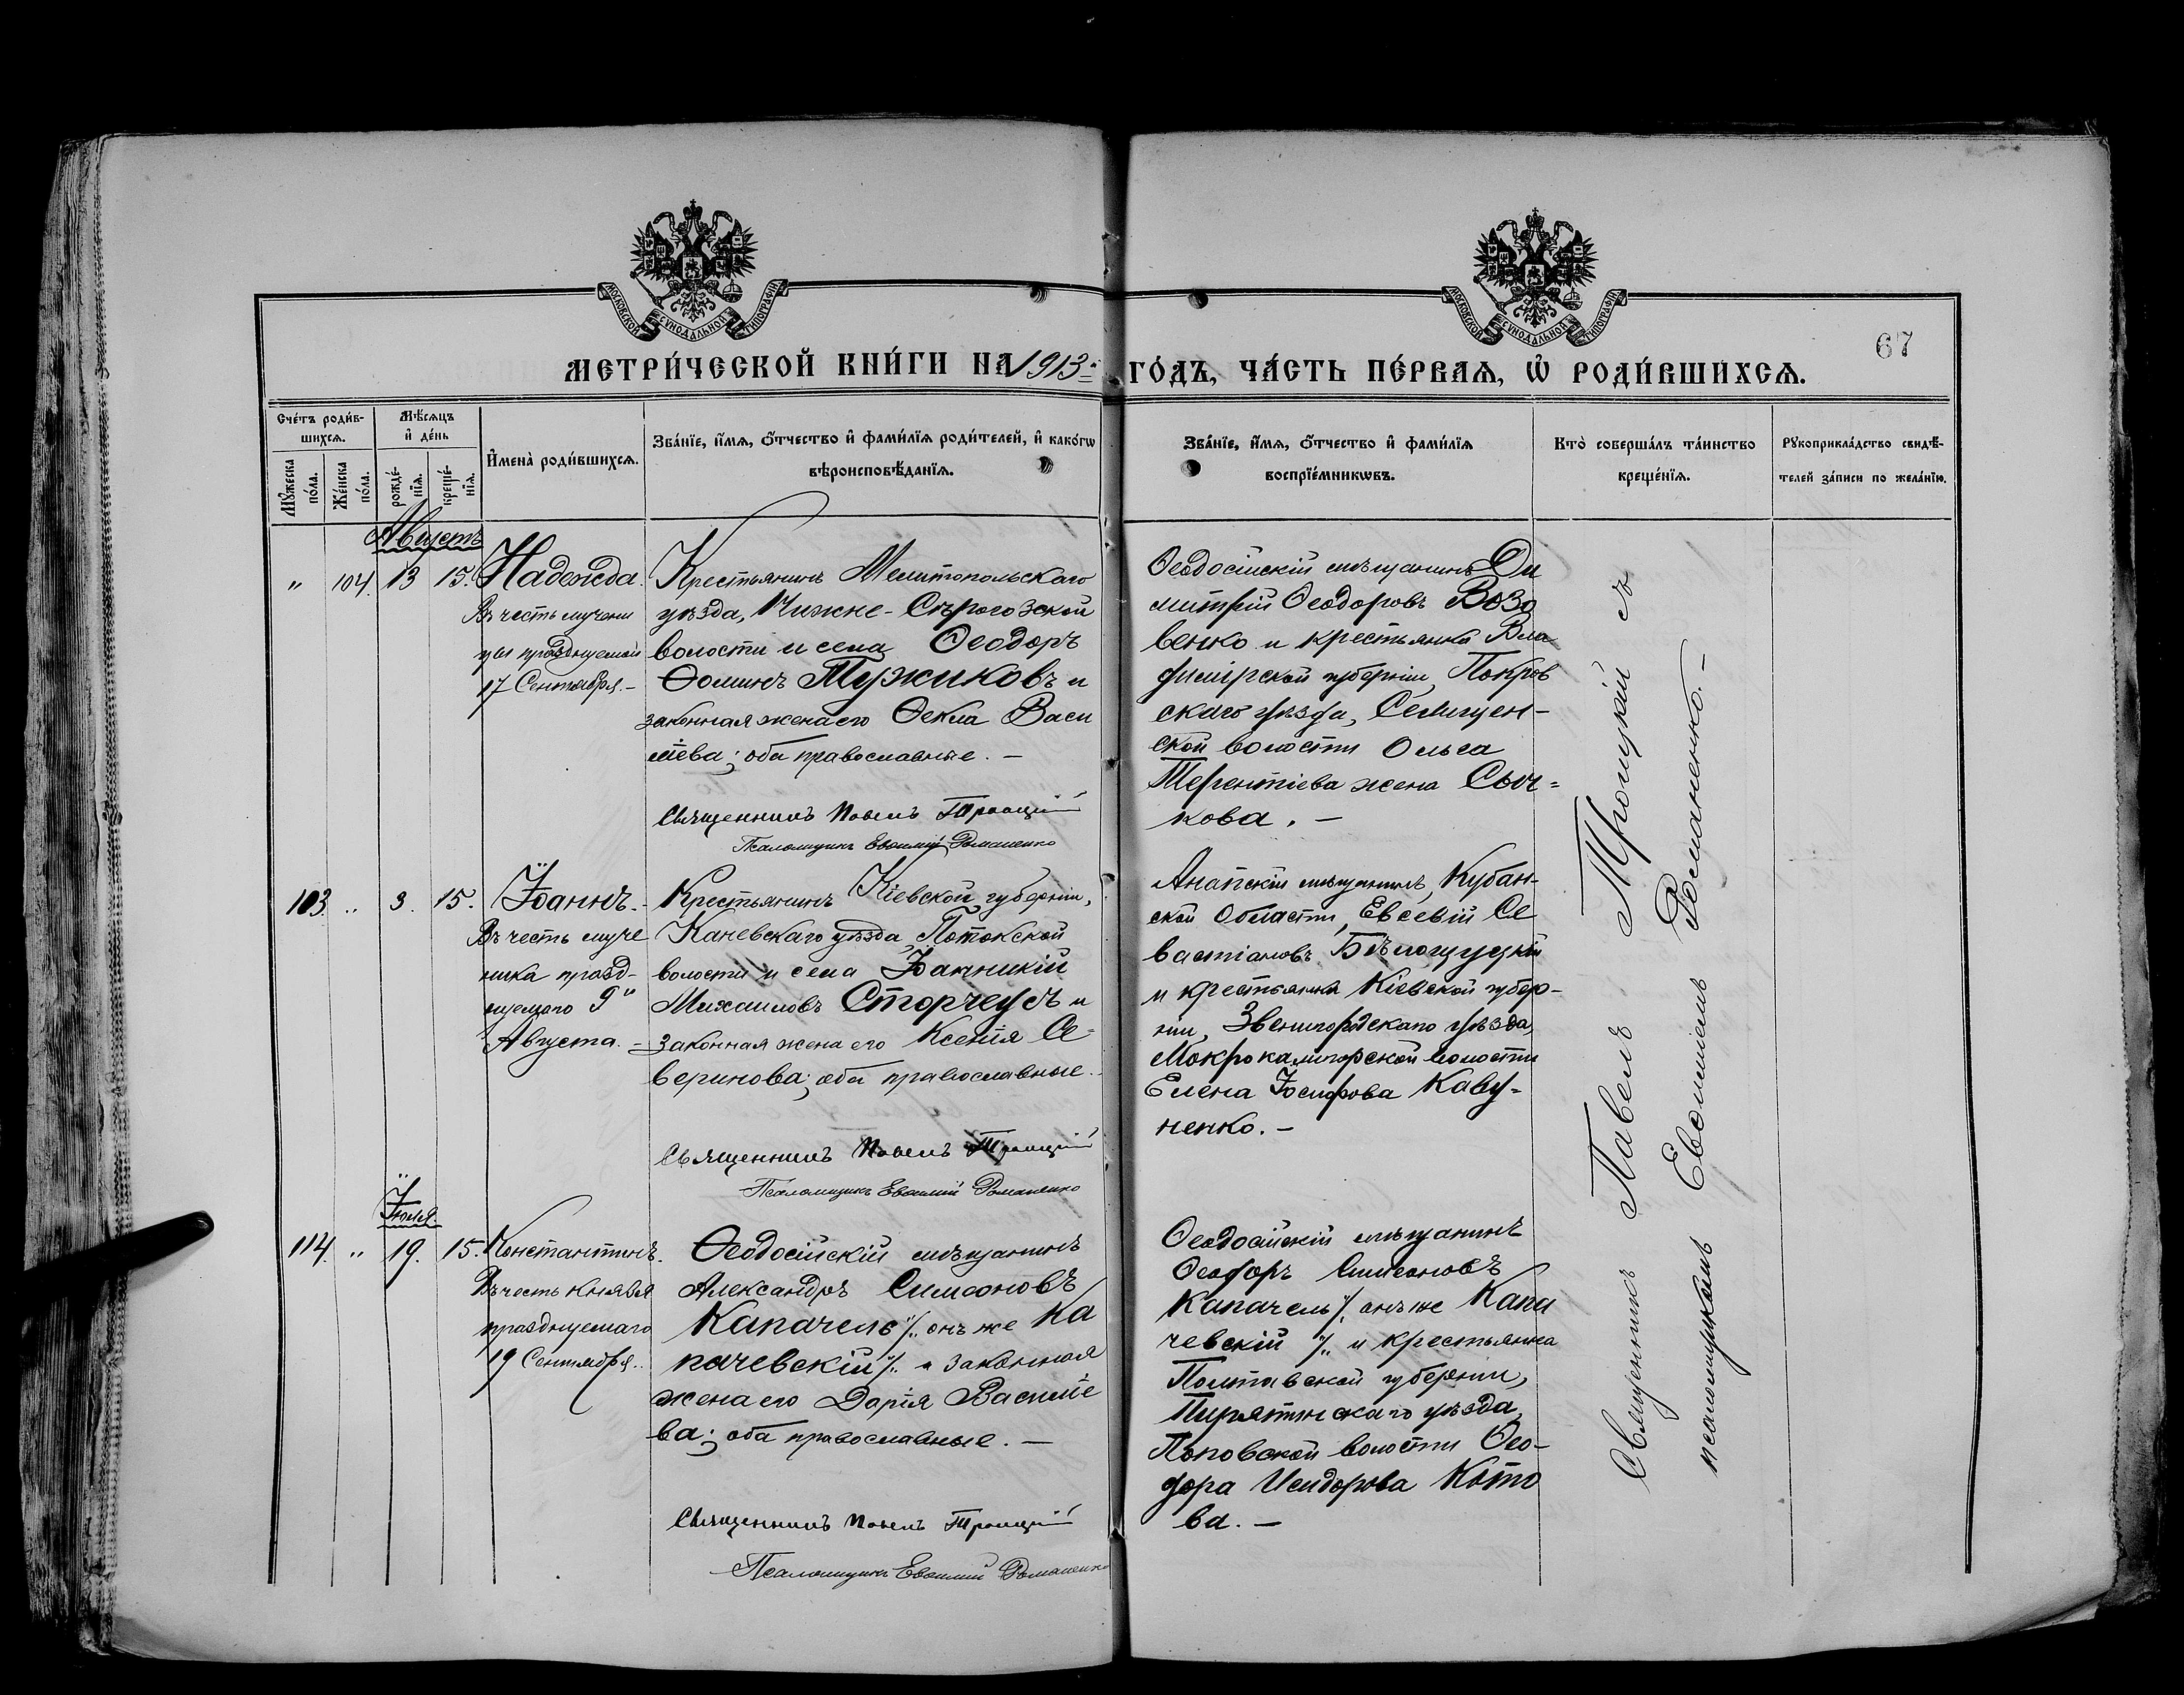 МОСКОВСКОЙ СѴНОДАЛЬНОЙ ТИПОГРАФІИ
МОСКОВСКОЙ СѴНОДАЛЬНОЙ ТИПОГРАФІИ
67
МЕТРИ́ЧЕСКОЙ КНИ́ГИ НА 1913 ГО́ДЪ, ЧА́СТЬ ПЕ́РВАѦ, Ѡ҆ РОДИ́ВШИХСѦ.
Сче́тъ роди́в-
шихсѧ.
Мꙋ́жеска
по́ла.
Же́нска
по́ла.
Мѣ́сѧцъ
и҆ де́нь
рожде́-
нїѧ.
креще́-
нїѧ.
И҆мена̀ роди́вшихсѧ.
Зва́нїе, и҆́мѧ, ѻ҆́тчество и҆ фами́лїѧ роди́телей, и҆ како́гѡ
вѣроисповѣ́данїѧ.
Зва́нїе, и҆́мѧ, ѻ҆́тчество и҆ фами́лїѧ
воспрїе́мникѡвъ.
Кто̀ соверша́лъ та́инство
креще́нїѧ.
Рꙋкоприкла́дство свидѣ́-
телей за́писи по жела́нїю.
Августъ
" 104. 13 15. Надежда.
Въ честь мучени
цы празднуемой
17 Сентября. –
Крестьянинъ Мелитопольскаго
уѣзда, Нижне-Сѣрогозской
волости и села Ѳеодоръ
Ѳоминъ Тужиковъ и
законная жена его Ѳекла Васи
ліева; оба православные. –
Священникъ Павелъ Троицкій
Псаломщикъ Евѳимій Романенко
Ѳеодосійскій мѣщанинъ Ди
митрій Ѳеодоровъ Возо
венко и крестьянка Вла
димірской губерніи, Покров
скаго уѣзда, Селищен-
ской волости Ольга
Терентіева жена Сыч-
кова. –
103. " 3. 15. Іоаннъ.
Въ честь муче
ника празд-
нуемаго 9"
Августа. –
Крестьянинъ Кіевской губерніи,
Каневскаго уѣзда, Потокской
волости и села Іоанникій
Михаиловъ Сторчеусъ и
законная жена его Ксенія Се-
веринова; оба православные. –
Священникъ Павелъ Троицкій
Псаломщикъ Евѳимій Романенко
Анапскій мѣщанинъ, Кубан-
ской Области, Евсевій Се
вастіановъ Бѣлоцуцкій
и крестьянка Кіевской губер-
ніи, Звенигородскаго уѣзда,
Мокрокалигорской волости
Елена Іосифова Каву-
ненко. –
Іюля
114. " 19. 15. Константинъ.
Въ честь Князя
празднуемаго
19 Сентября.
Ѳеодосійскій мѣщанинъ
Александръ Симеоновъ
Капачель /. онъ же Ка
пачевскій /. и законная
жена его Дарія Василіе
ва; оба православные. –
Священникъ Павелъ Троицкій
Псаломщикъ Евѳимій Романенко
Ѳеодосійскій мѣщанинъ
Ѳеодоръ Симеоновъ
Капачель /. онъ же Капа
чевскій /. и крестьянка
Полтавской губерніи,
Пирятинскаго уѣзда,
Поповской волости Ѳео-
дора Исидорова Кото
ва. –
Священникъ Павелъ Троицкій съ
псаломщикомъ Евѳиміемъ Романенко. –